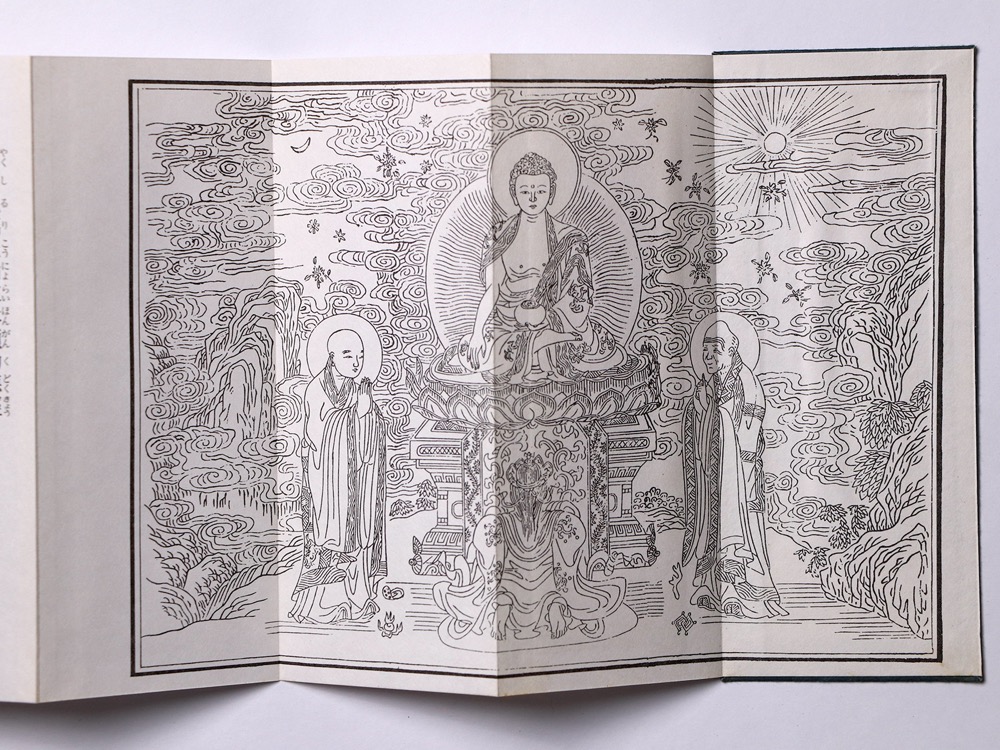 やくしるりこうによらいほんがんくどくきょう